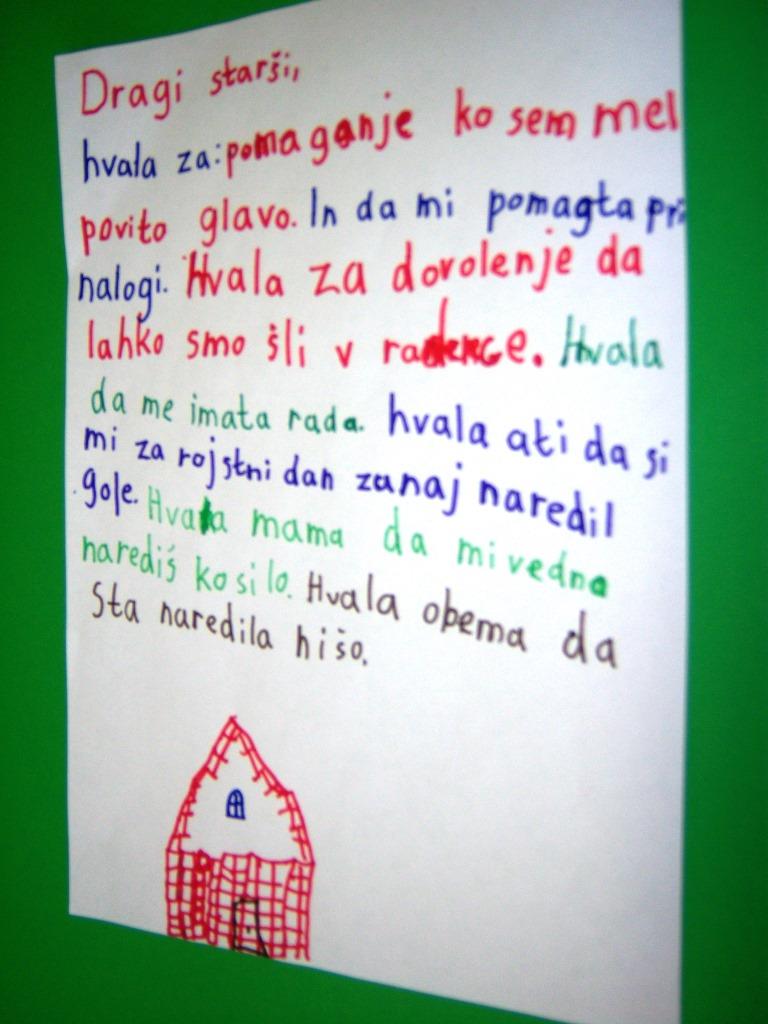 Dragi starši,
hvala za: pomaganje ko sem mel
povito glavo. In da mi pomagta pri
nalogi. Hvala za dovolenje da
lahko smo šli v radence. Hvala
da me imata rada. hvala ati da si
mi za rojstni dan zunaj naredil
gole. Hvala mama da mi vedno
narediš kosilo. Hvala obema da
sta naredila hišo.